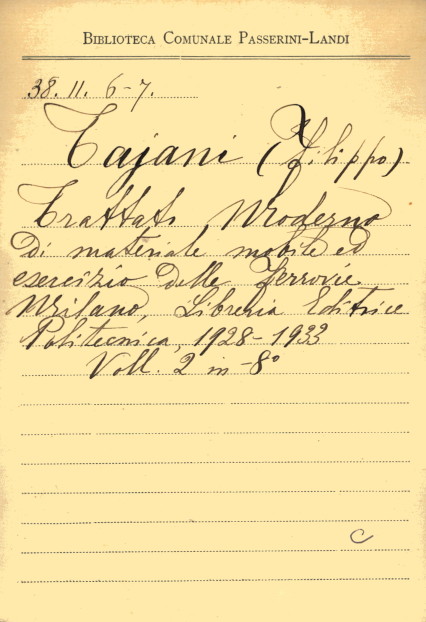 BIBLIOTECA COMUNALE PASSERINI-LANDI
38. 11. 6-7.
Tajani (Filippo)
Trattato Moderno
di materiale mobile ed
esercizio delle Ferrovie
Milano, Libreria Editrice
Politecnica, 1928-1933
Voll. 2 in-8°
C